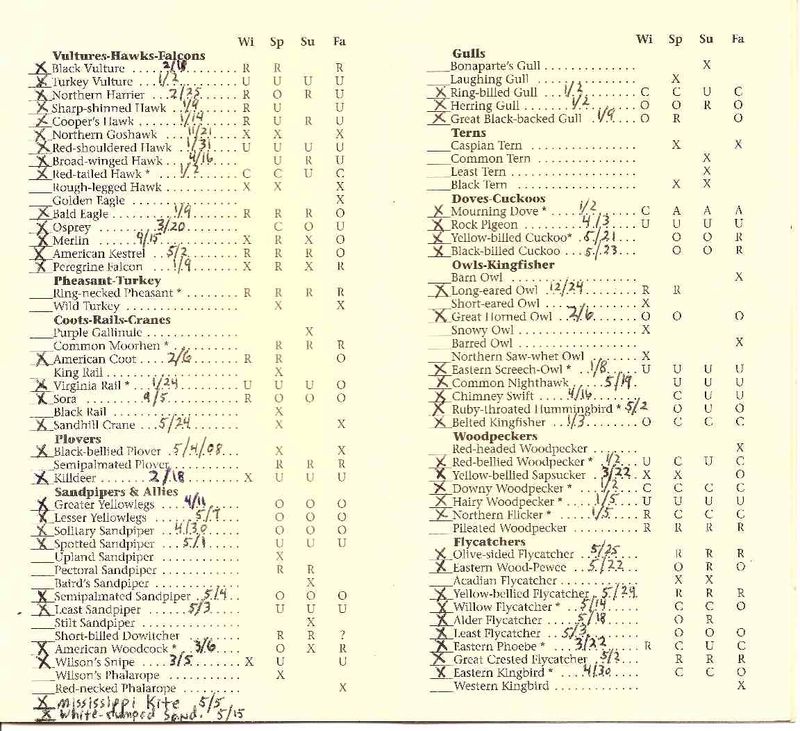 Wi Sp Su Fa
Vultures-Hawks-Falcons
X Black Vulture . . . . 2/18 . . . . . . . R R R
X Turkey Vulture . . 1/2 . . . . . . . . . U U U U
X Northern Harrier . . 2/25 . . . . . . R O R U
X Sharp-shinned Hawk . 1/9 . . . . . R U U
X Cooper's Hawk . . . 1/14 . . . . . . . R U R U
X Northern Goshawk . . 11/21 . . . . . X X X
X Red-shouldered Hawk . 1/31 . . . . U U U U
X Broad-winged Hawk . . 4/16 . . . . . U R U
X Red-tailed Hawk * . . 1/2 . . . . . . . C C U C
Rough-legged Hawk . . . . . . . . . . X X X
Golden Eagle . . . . . . . . . . . . . . . X
X Bald Eagle . . . . . . 1/9 . . . . . . . . R R R O
X Osprey . . . . . 3/20 . . . . . . . . . . C O U
X Merlin . . . 9/15 . . . . . . . . . . . X R X O
X American Kestrel . . . 5/2 . . . . . . R R R O
X Peregrine Falcon . . . 1/9 . . . . . . X R X R
Pheasant-Turkey
Ring-necked Pheasant * . . . . . . . . R R R R
Wild Turkey . . . . . . . . . . . . . . . X X
Coots-Rails-Cranes
Purple Gallinule . . . . . . . . . . . . . X
Common Moorhen * . . . . . . . . . . R R R
X American Coot . . . 2/6 . . . . . . . R R O
King Rail . . . . . . . . . . . . . . . . . X
X Virginia Rail * . . . 1/24 . . . . . . . U U U O
X Sora . . . . . . . 9/5 . . . . . . . . . R O O O
Black Rail . . . . . . . . . . . . . . . . X
X Sandhill Crane . . . 5/24 . . . . . . . X X
Plovers
X Black-bellied Plover . 5/4/08 . . . X X
Semipalmated Plover . . . . . . . . . R R R
X Killdeer . . . . . . 2/18 . . . . . . . . X U U U
Sandpipers & Allies
X Greater Yellowlegs 4/11 . . . . . . O O O
X Lesser Yellowlegs . . . 5/7 . . . . . O O O
X Solitary Sandpiper . . 4/30 . . . . . O O O
X Spotted Sandpiper . . . 5/1 . . . . . U U U
Upland Sandpiper . . . . . . . . . . . X
Pectoral Sandpiper . . . . . . . . . . R R
Baird's Sandpiper . . . . . . . . . . . X
X Semipalmated Sandpiper . . 5/4 . . O O O
X Least Sandpiper . . . . 5/3 . . . . . . U U U
Stilt Sandpiper . . . . . . . . . . . . . X
Short-billed Dowitcher . . . . . . . . R R ?
X American Woodcock * . . 3/6 . . . O X R
X Wilson's Snipe . . . 3/5 . . . . . . . X U U
Wilson's Phalarope . . . . . . . . . . X
Red-necked Phalarope . . . . . . . . X
X Mississippi Kite 5/5
X White-rumped Sand. 5/15
Wi Sp Su Fa
Gulls
Bonaparte's Gull . . . . . . . . . . . . X
Laughing Gull . . . . . . . . . . . . . . X
X Ring-billed Gull . . . 1/2 . . . . . . . C C U C
X Herring Gull . . . . . 1/2 . . . . . . . O O R O
X Great Black-backed Gull . 1/9 . . . O R O
Terns
Caspian Tern . . . . . . . . . . . . . . X X
Common Tern . . . . . . . . . . . . . X
Least Tern . . . . . . . . . . . . . . . . X
Black Tern . . . . . . . . . . . . . . . . X X
Doves-Cuckoos
X Mourning Dove * . . . 1/2 . . . . . . C A A A
X Rock Pigeon . . . . . . 4/3 . . . . . . U U U U
X Yellow-billed Cuckoo* . 5/21 . . . . O O R
X Black-billed Cuckoo . . . 5/23 . . . . O O R
Owls-Kingfisher
Barn Owl . . . . . . . . . . . . . . . . . X
X Long-eared Owl 12/24 . . . . . . . R R
Short-eared Owl . . . . . . . . . . . . X
X Great Horned Owl . . 2/6 . . . . . . O O O
Snowy Owl . . . . . . . . . . . . . . . X
Barred Owl . . . . . . . . . . . . . . . X
Northern Saw-whet Owl . . . . . . . X
X Eastern Screech-Owl * . . 1/8 . . . . U U U U
X Common Nighthawk . . . . 5/19 . . U U U
X Chimney Swift . . . . 4/16 . . . . . . C U U
X Ruby-throated Hummingbird * 5/2 O U O
X Belted Kingfisher . . . 1/3 . . . . . . . O C C C
Woodpeckers
Red-headed Woodpecker . . . . . . . X
X Red-bellied Woodpecker * . 1/2 . . . U C U C
X Yellow-bellied Sapsucker . 3/22 . . X X O
X Downy Woodpecker * . . 1/2 . . . . C C C C
X Hairy Woodpecker * . . . 1/5 . . . . U U U U
X Northern Flicker * . . . 1/5 . . . . . . R C C C
Pileated Woodpecker . . . . . . . . . R R R R
Flycatchers
X Olive-sided Flycatcher . . 5/25 . . . R R R
X Eastern Wood-Pewee . . 5/22 . . . . O R O
Acadian Flycatcher . . . . . . . . . . X X
X Yellow-bellied Flycatcher . . 5/29 . R R R
X Willow Flycatcher * . . 5/14 . . . . . C C O
X Alder Flycatcher . . . . 5/18 . . . . . O R
X Least Flycatcher . . . 5/3 . . . . . . . O O O
X Eastern Phoebe * . . . 3/22 . . . . . R C U C
X Great Crested Flycatcher . . 5/2 . . . R R R
X Eastern Kingbird * . . . . 4/30 . . . . C C O
Western Kingbird . . . . . . . . . . . X